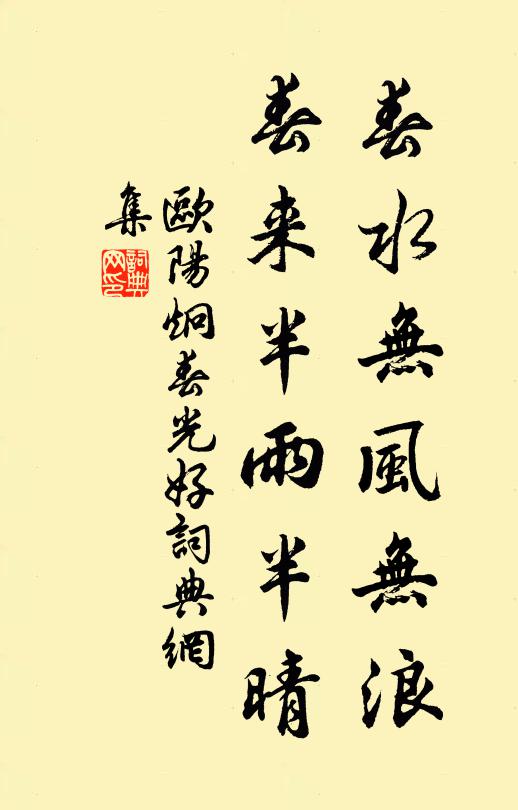 春水無風無浪
春來半雨半晴
歐陽炯春光好詞典網
集
詞典
网印